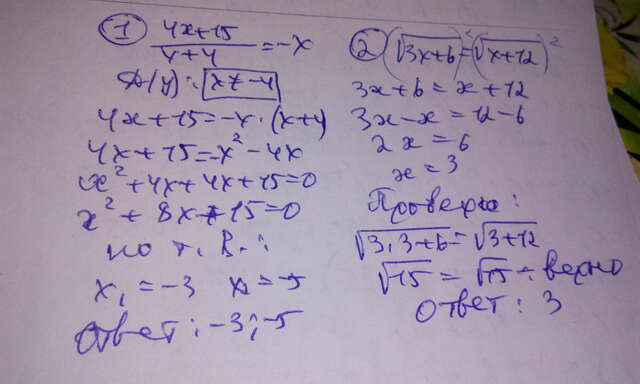 ① (4x+15)/(x+4) = -x
D(y): x ≠ -4
4x+15=-x·(x+4)
4x+15=-x²-4x
x²+4x+4x+15=0
x²+8x+15=0
по т. В.:
x₁ = -3 x₂ = -5
Ответ: -3; -5
② (√3x+6)² = (√x+12)²
3x+6=x+12
3x-x=12-6
2x=6
x=3
Проверка:
√3·3+6 = √3+12
√15 = √15 - верно
Ответ: 3